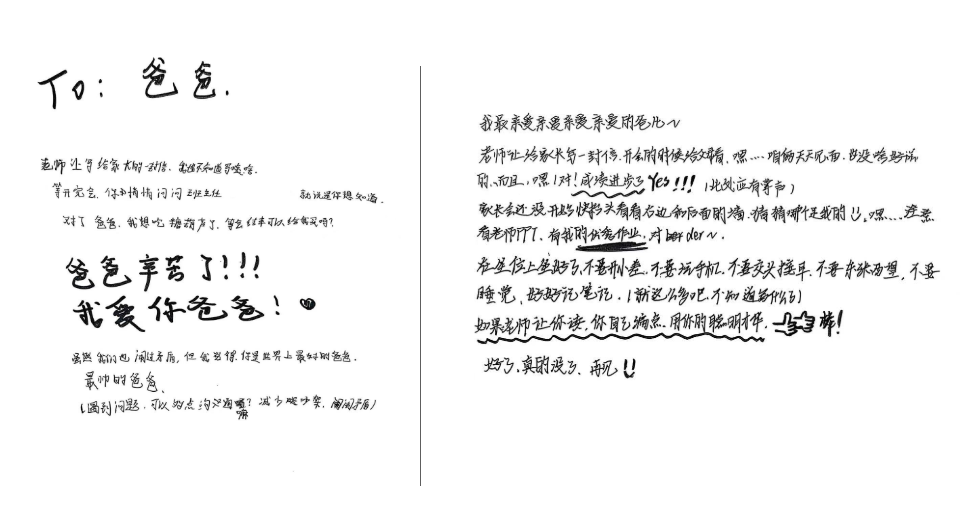 To: 爸爸.
老师让写给家长的一封信, 我也不知道写啥啥.
等开完会, 你去悄悄问问班主任 就说是你想知道.
对了爸爸, 我想吃糖葫芦了, 等会结束可以给我买吗?
爸爸辛苦了!!!
我爱你爸爸!
虽然我们也闹过矛盾, 但我觉得你是世界上最好的爸爸.
最帅的爸爸.
(遇到问题, 可以好点沟通嘛? 减少吵架, 闹闹矛盾)
我最亲爱亲爱亲爱亲爱的爸比~
老师让给家长写一封信, 开会的时候给父母看, 嘿.... 咱俩天天见面, 也没啥好说
的, 而且, 嘿! 对! 成绩进步了 Yes!!! (此处应有掌声)
家长会还没开始, 快抬头看看右边和后面的墙, 猜猜哪个是我的!!, 嘿....
看老师PPT, 有我的优秀作业, 对 der~.
在坐位上坐好了, 不要开小差, 不要玩手机, 不要交头接耳, 不要东张西望, 不要
睡觉, 好好记笔记, (就这么多吧, 不知道写什么了)
如果老师让你读, 你自己编点, 用你的聪明才华, 棒!
好了, 真的没了, 再见!!